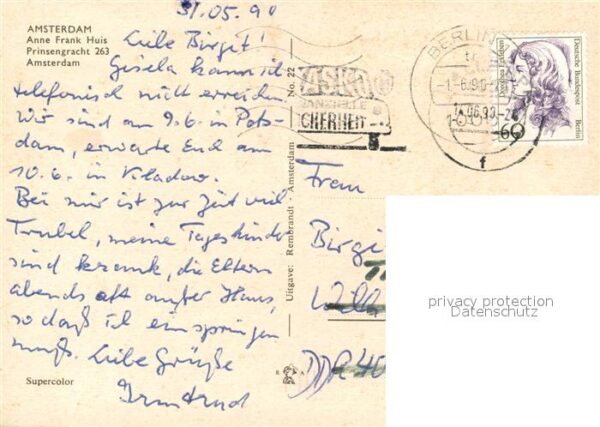 AMSTERDAM
Anne Frank Huis
Prinsengracht 263
Amsterdam
31.05.90
Liebe Birgit!
Gisela kann ich
telefonisch nicht erreichen
Wir sind am 9.6. in Pots-
dam, erwarte Euch am
10.6. in Kladow.
Bei mir ist zur Zeit viel
Trubel, meine Tageskinder
sind krank, die Eltern
abends oft außer Haus,
so daß ich einspringen
muß. Liebe Grüße
Irmtrud
Supercolor
No. 22
Uitgave: Rembrandt - Amsterdam
R A
CHERHEIT
BERLIN
-1.-6.90
f
Deutsche Bundespost
Berlin
60
Frau
DDR 40
privacy protection
Datenschutz